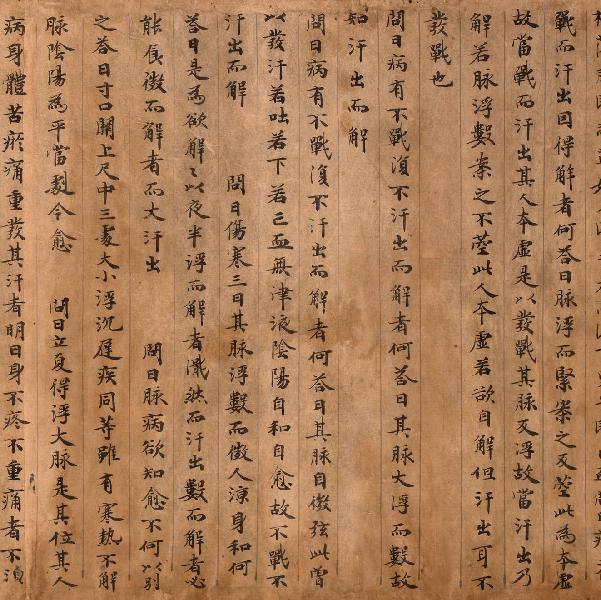 戰而汗出因得解者何荅曰脉浮而緊案之反芤此為本虛
故當戰而汗出其人本虛是以發戰其脉反浮故當汗出乃
解若脉浮數案之不芤此人本虛若欲自解但汗出耳不
發戰也
問曰病有不戰復不汗出而解者何荅曰其脉大浮而數故
知汗出而解
問曰病有不戰復不汗出而解者何荅曰其脉自微弦此曾
以發汗若吐若下若亡血無津液陰陽自和自愈故不戰不
汗出而解 問曰傷寒三日其脉浮數而微人凉身和何
荅曰是為欲解〻以夜半浮而解者濈然而汗出數而解者必
能食微而解者而大汗出 問曰脉病欲知愈不何以別
之荅曰寸口關上尺中三處大小浮沉遟疾同等雖有寒熱不解
脉陰陽為平當劇今愈 問曰立夏得浮大脉是其位其人
病身體苦瘀痛重發其汗者明日身不疼不重痛者不須